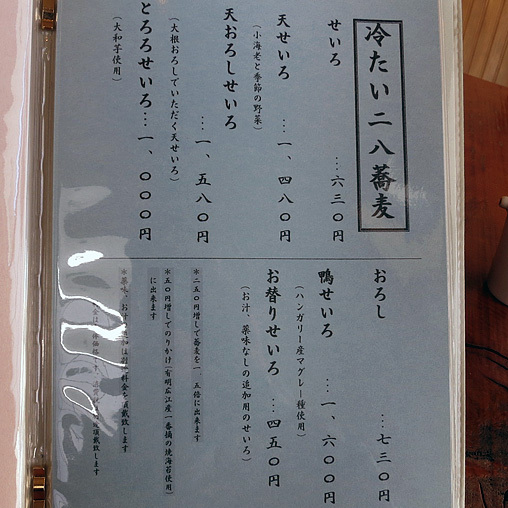 冷たい二八蕎麦
せいろ …六三〇円
天せいろ …一、四八〇円
(小海老と季節の野菜)
天おろしせいろ …一、五八〇円
(大根おろしでいただく天せいろ)
とろろせいろ…一、〇〇〇円
(大和芋使用)
おろし …七三〇円
鴨せいろ …一、六〇〇円
(ハンガリー産マグレー種使用)
お替りせいろ …四五〇円
(お汁、薬味なしの追加用のせいろ)
*二五〇円増しで蕎麦を一、五倍に出来ます
*五〇円増しでのりかけ(有明広江産一番摘の焼海苔使用)
に出来ます
*薬味、お汁の追加は別途料金を頂戴致します